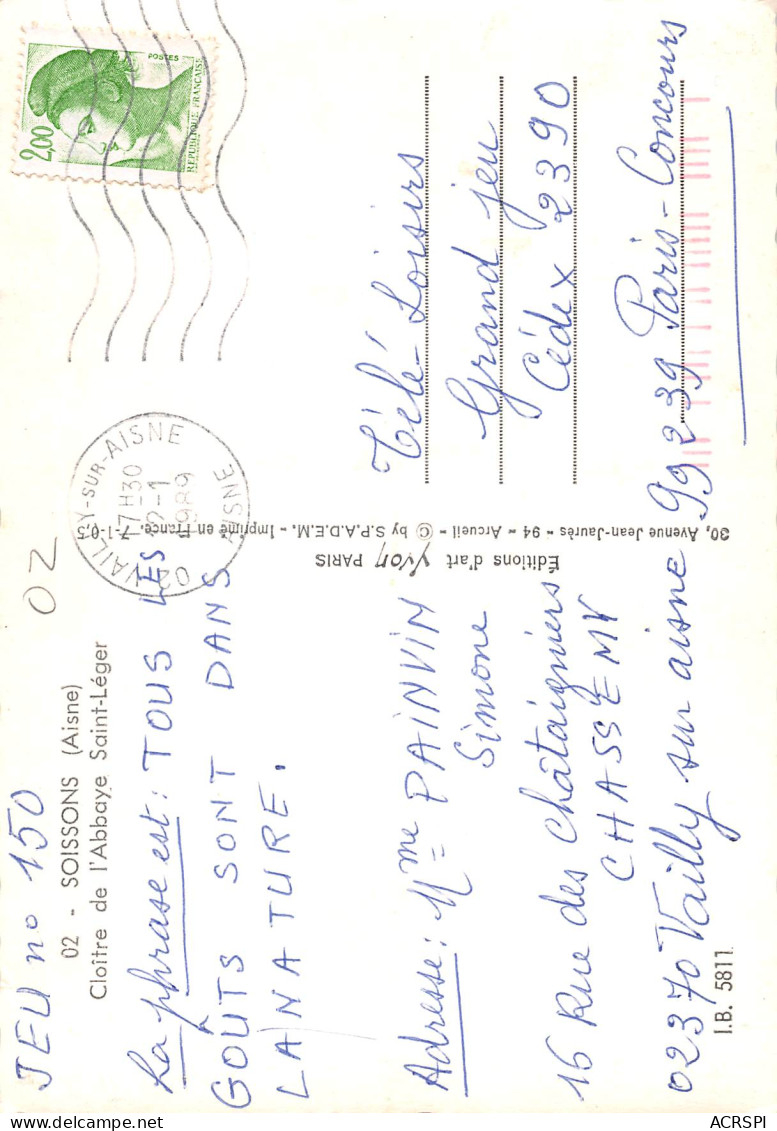 JEU nº 150
02 - SOISSONS (Aisne)
Cloître de l'Abbaye Saint-Léger
La phrase est : TOUS LES
GOÛTS SONT DANS
LA NATURE.
Adresse : Mme PAINVIN
Simone
16 Rue des Châtaigniers
CHASSEMY
02370 Vailly sur aisne
I.B. 5811
02
Éditions d'art Yvon PARIS
30, Avenue Jean-Jaurès - 94 - Arcueil - © by S.P.A.D.E.M. - Imprimé en France. - 7-1-0,5
VAILLY-SUR-AISNE
17H30
1989
02 AISNE
POSTES
2,00
REPUBLIQUE FRANÇAISE
Télé-Loisirs
Grand jeu
Cédex 2390
99239 Paris-Concours
ACRSPI